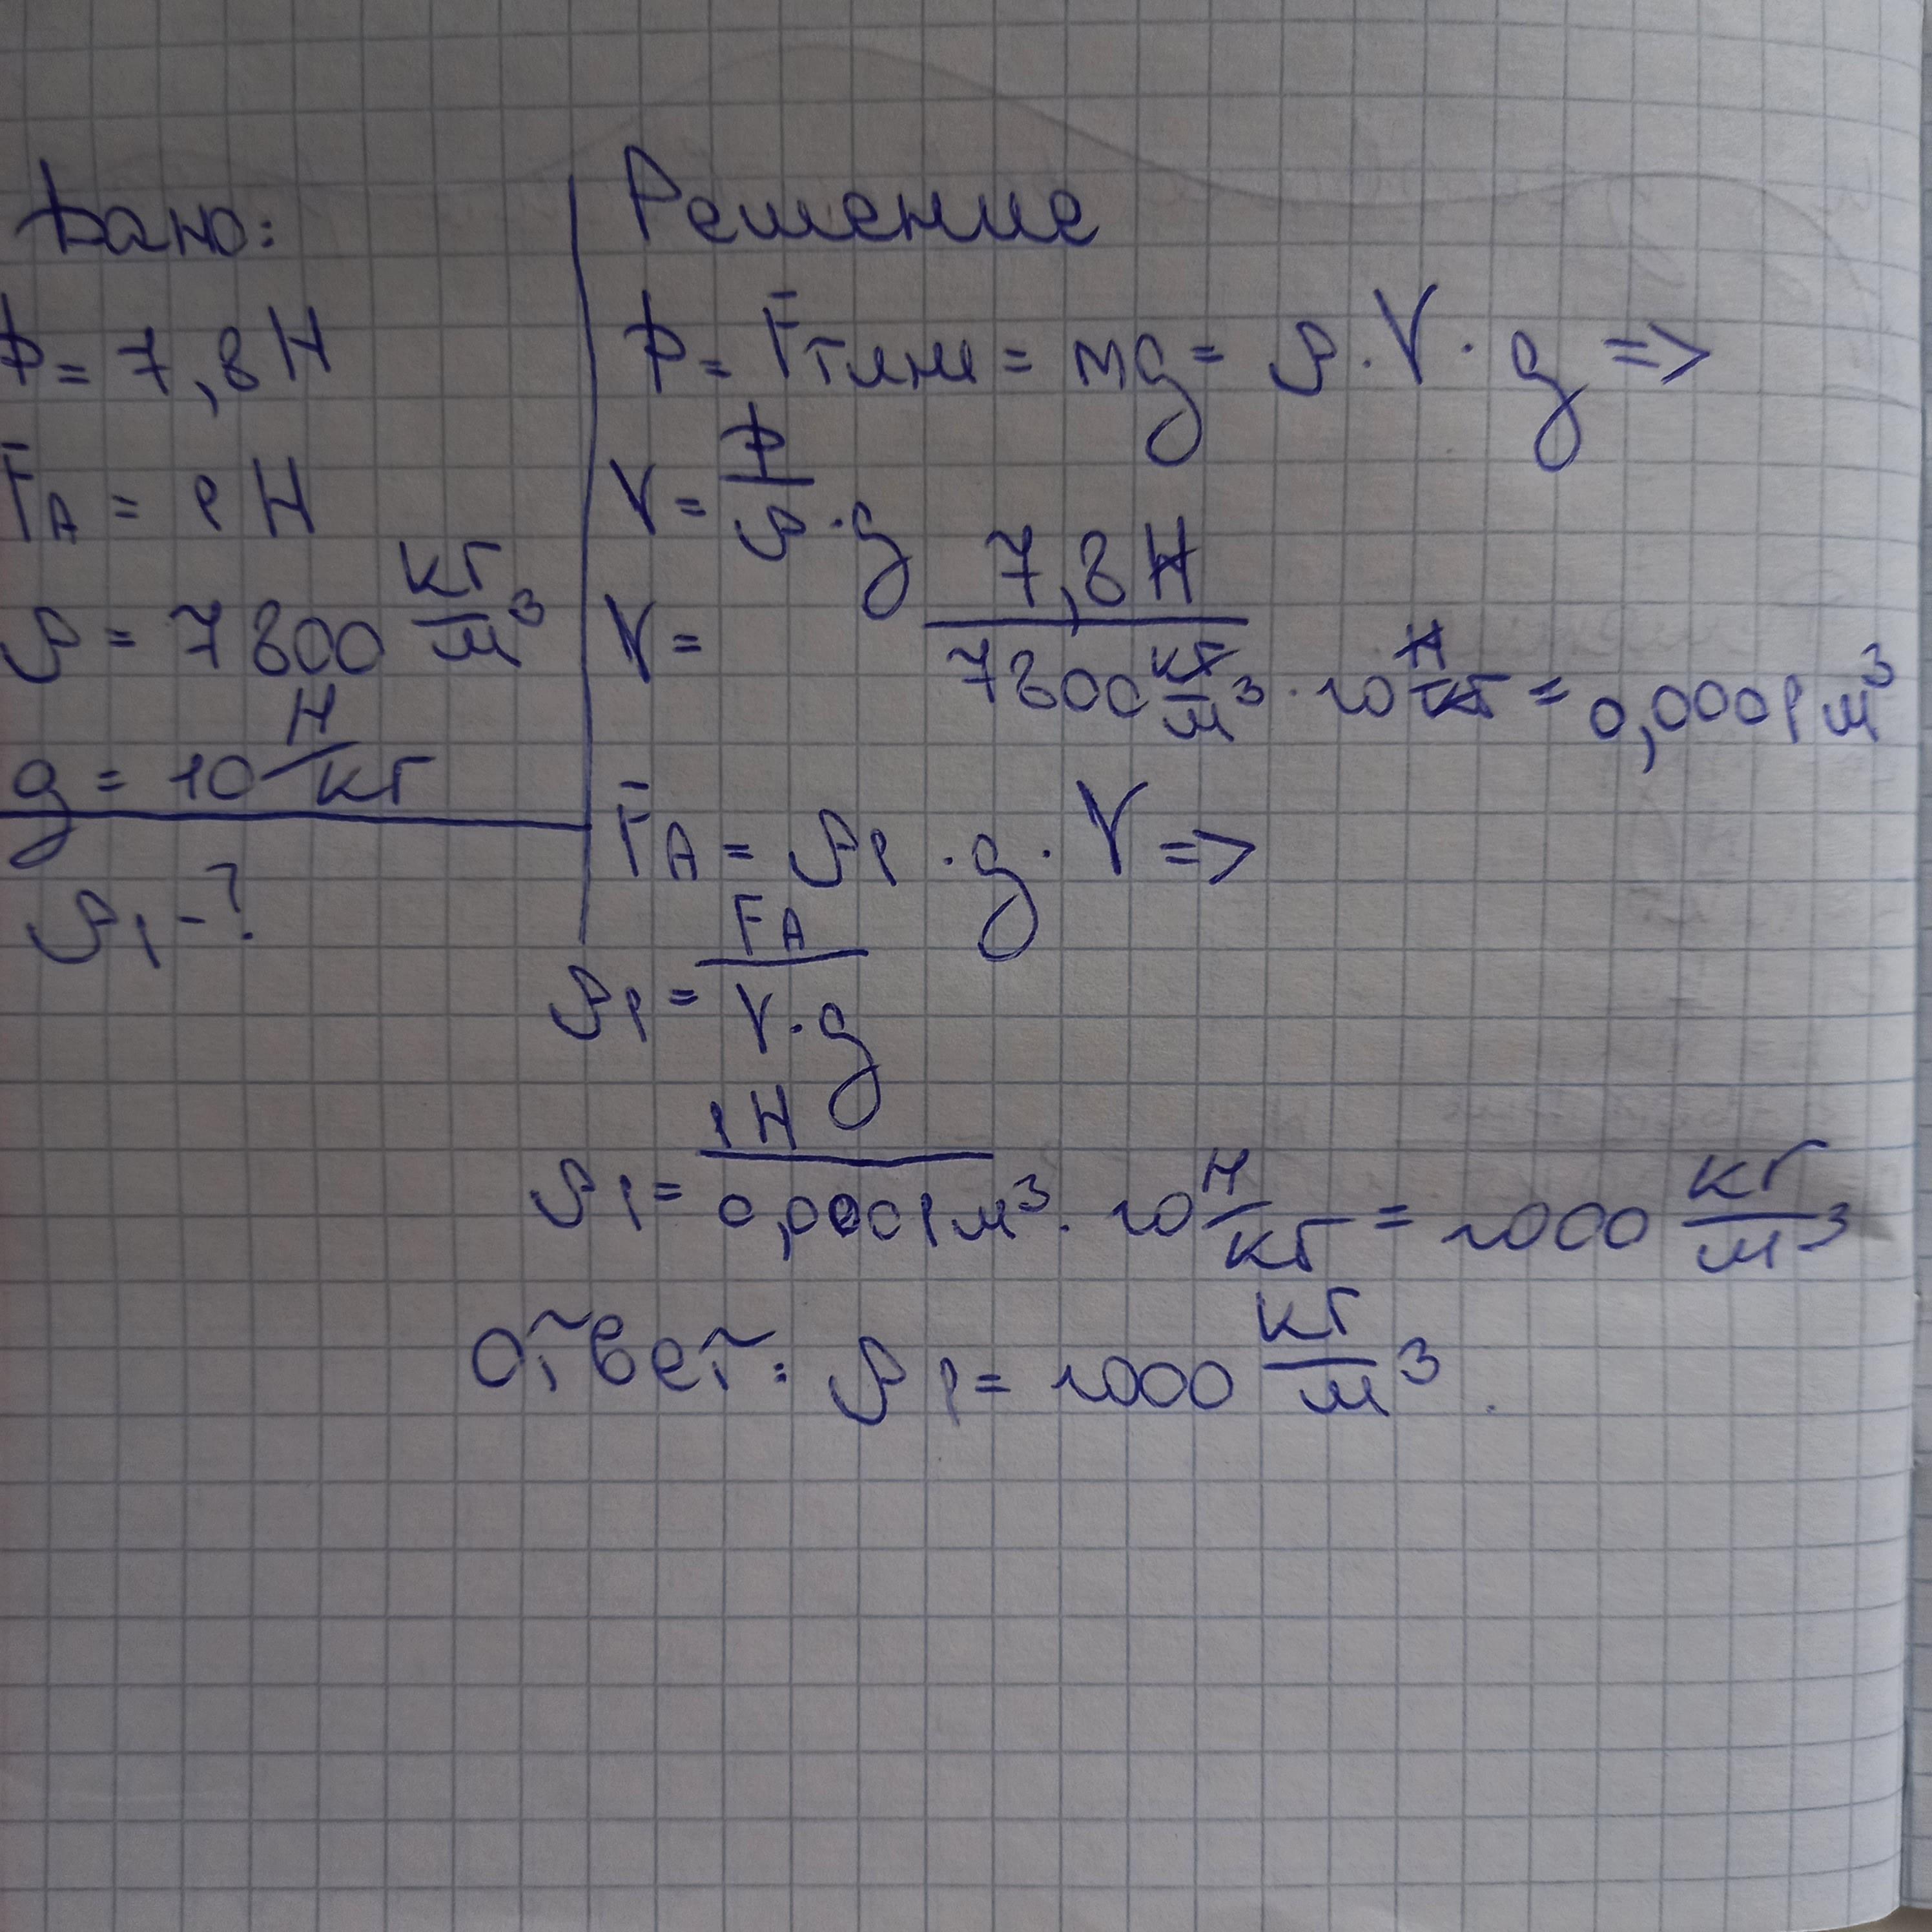 Дано:
P = 7,8 Н
FА = 1 Н
ρ = 7800 кг/м³
g = 10 Н/кг
ρ1 - ?
Решение
P = Fтяж = mg = ρ · V · g =>
V = P/ρ · g
V = 7,8 Н / 7800 кг/м³ · 10 Н/кг = 0,0001 м³
FА = ρ1 · g · V =>
ρ1 = FА / V · g
ρ1 = 1 Н / 0,0001 м³ · 10 Н/кг = 1000 кг/м³
Ответ: ρ1 = 1000 кг/м³.